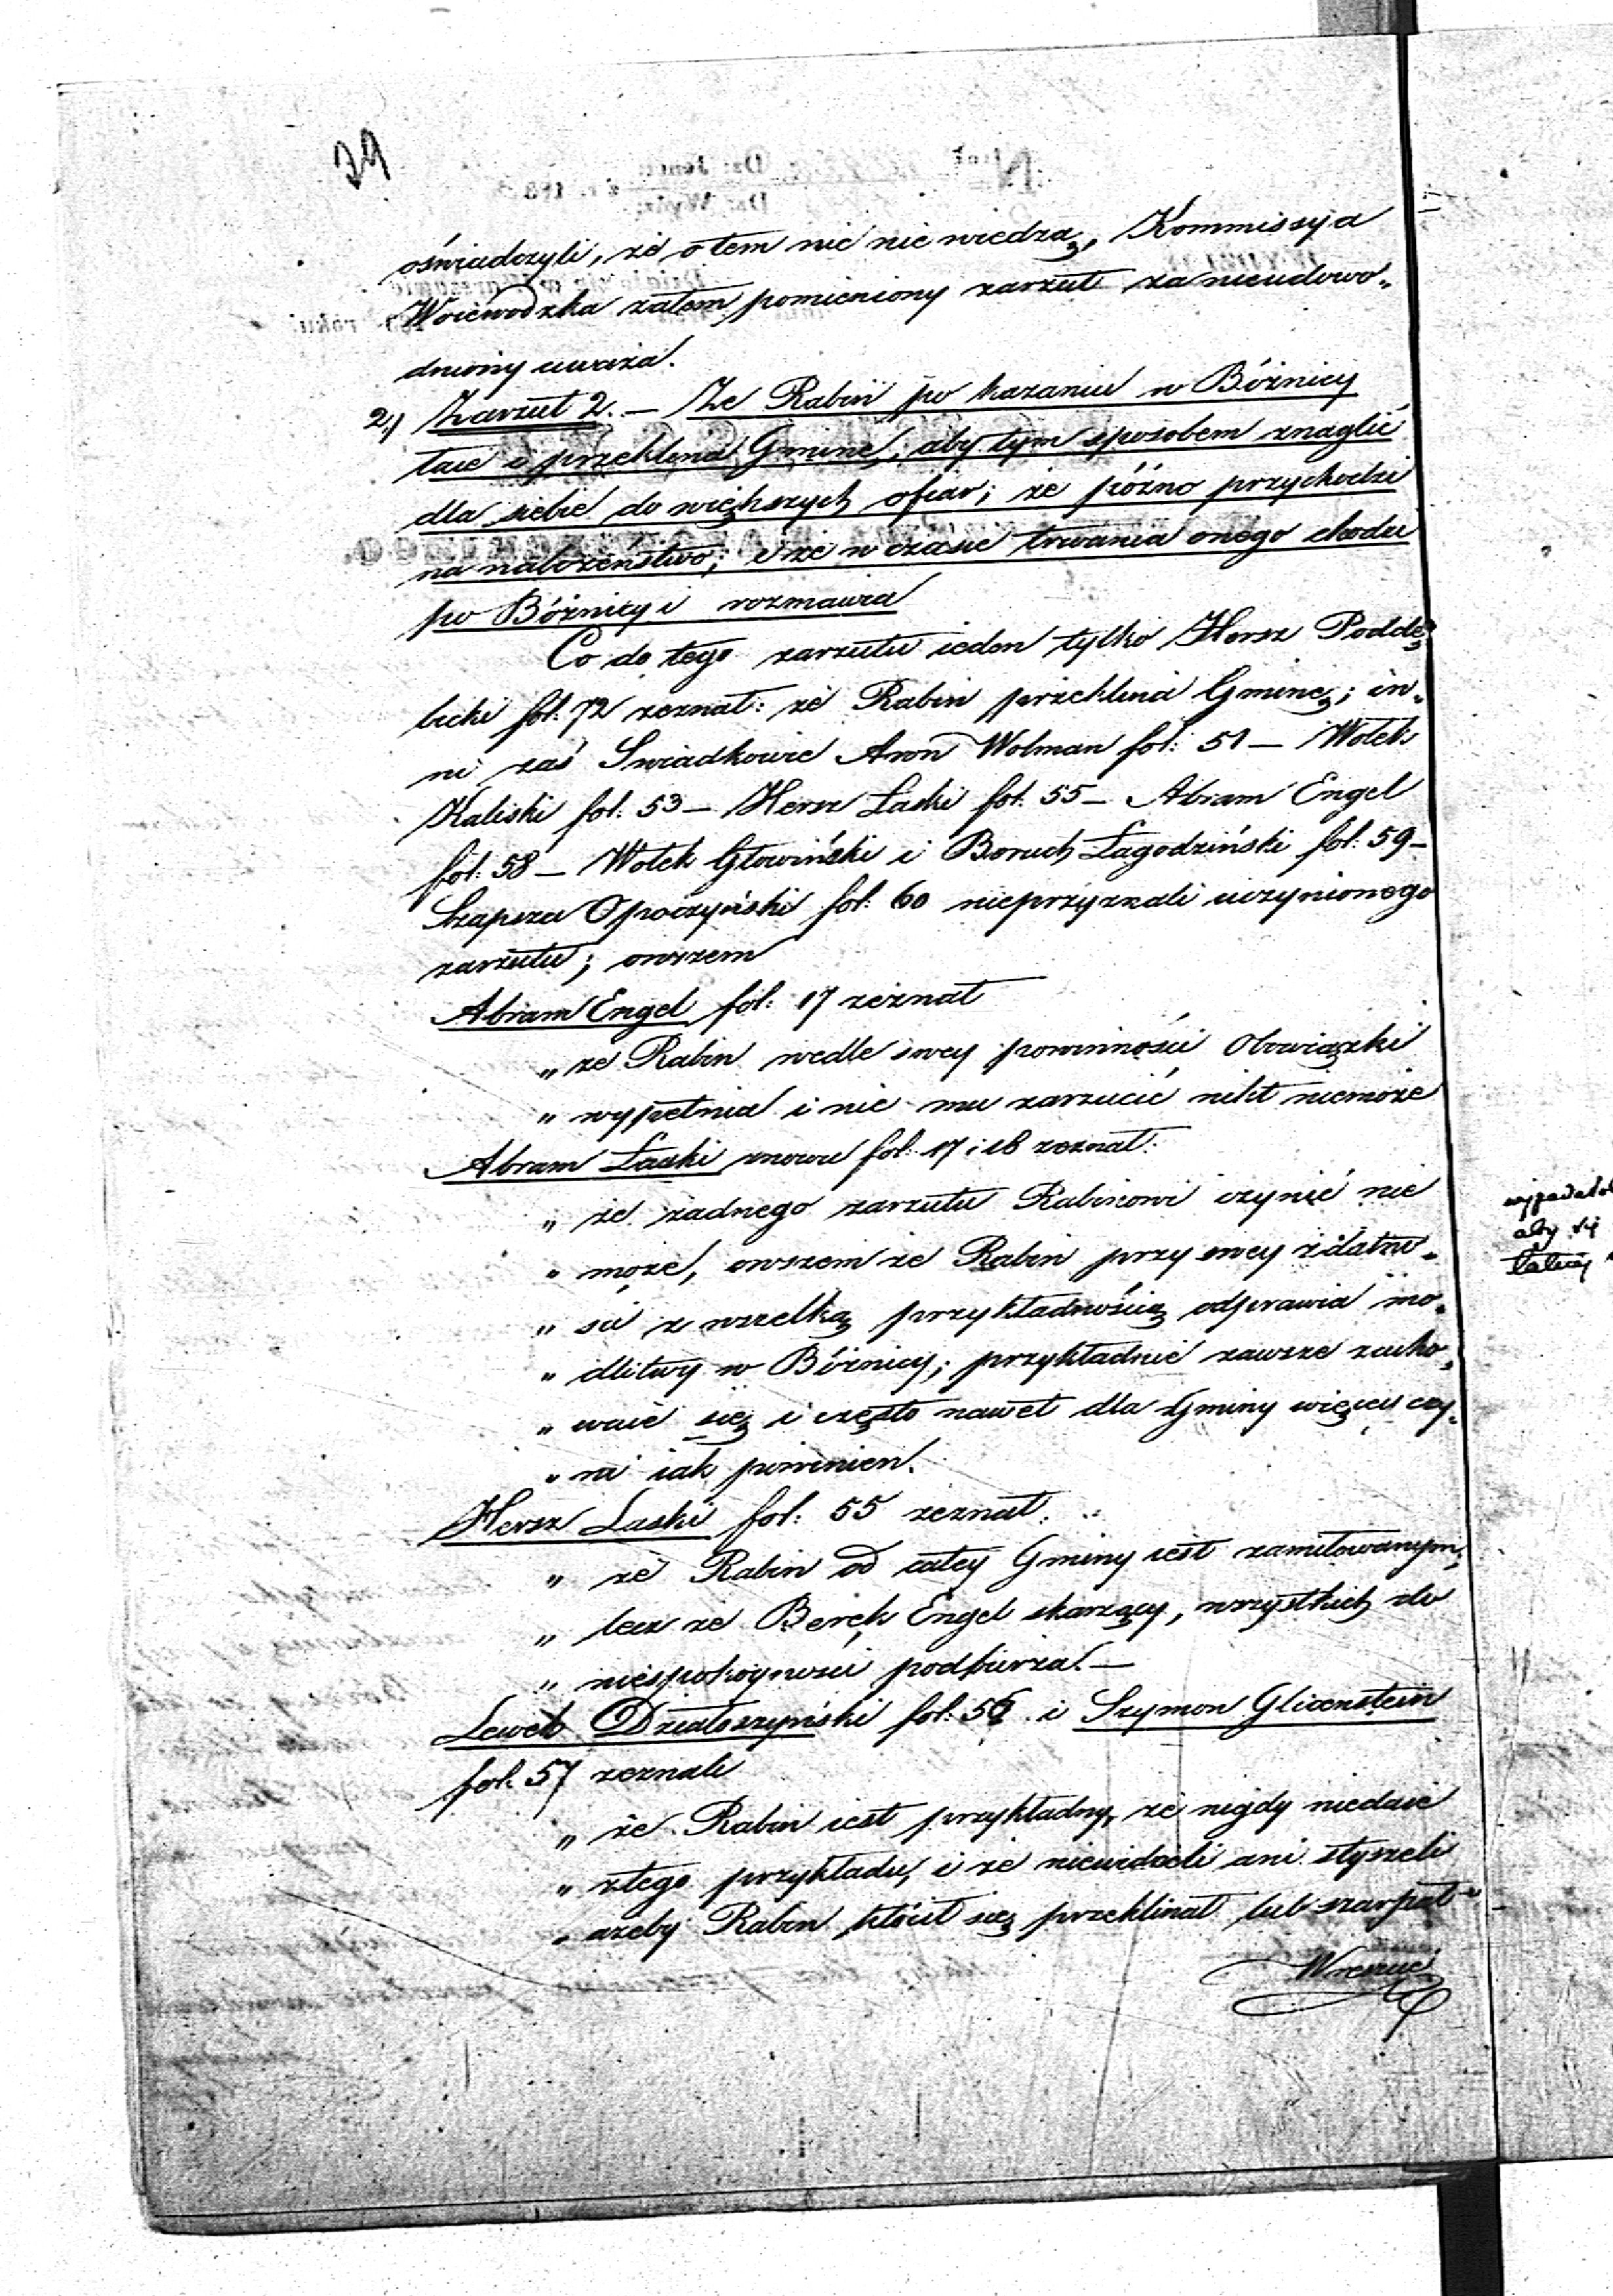 39
oświadczyli, że o tem nic nie wiedzą, Kommissyja
Woiewodzka zatem pomieniony zarzut za nieudowo„
dniony uważa.
2.) Zarzut 2. — Że Rabin po kazaniu w Bóżnicy
łaie i przeklina Gminę, aby tym sposobem znaglić
dla siebie do większych ofiar; że późno przychodzi
na nabożeństwo; i że w czasie trwania onego chodzi
po Bóżnicy i rozmawia
Co do tego zarzutu ieden tylko Hersz Poddę„
bicki fol: 72 zeznał: że Rabin przeklina Gminę; in„
ni zaś Swiadkowie Aron Wolman fol: 51 — Wolek
Kaliski fol: 53 — Hersz Laski fol: 55 — Abram Engel
fol: 58 — Wolek Głowiński i Boruch Łagodziński fol: 59 —
Szapsza Opoczyński fol: 60 nieprzyznali uczynionego
zarzutu; owszem
Abram Engel fol: 17 zeznał
„ że Rabin wedle swey powinności Obowiązki
„ wypełnia i nic mu zarzucić nikt niemoże
Abram Laski znowu fol: 17 i 18 zeznał:
„ że żadnego zarzutu Rabinowi czynić nie
„ może, owszem że Rabin przy swey zdatno„
„ ści z wszelką przykładnością odprawia mo„
„ dlitwy w Bóżnicy; przykładnie zawsze zacho„
„ wuie się i często nawet dla Gminy więcey czy„
„ ni iak powinien.
Hersz Laski fol: 55 zeznał:
„ że Rabin od całey Gminy iest zamiłowanym;
„ lecz że Berek Engel skarzący, wszystkich do
„ niespokoyności podburza. —
Lewek Działoszyński fol: 56 i Szymon Glicenstein
fol: 57 zeznali
„ że Rabin iest przykładny, że nigdy niedaie
„ złego przykładu, i że niewidzieli ani słyszeli
„ ażeby Rabin kłócił się przeklinał lub szarpał
aby się